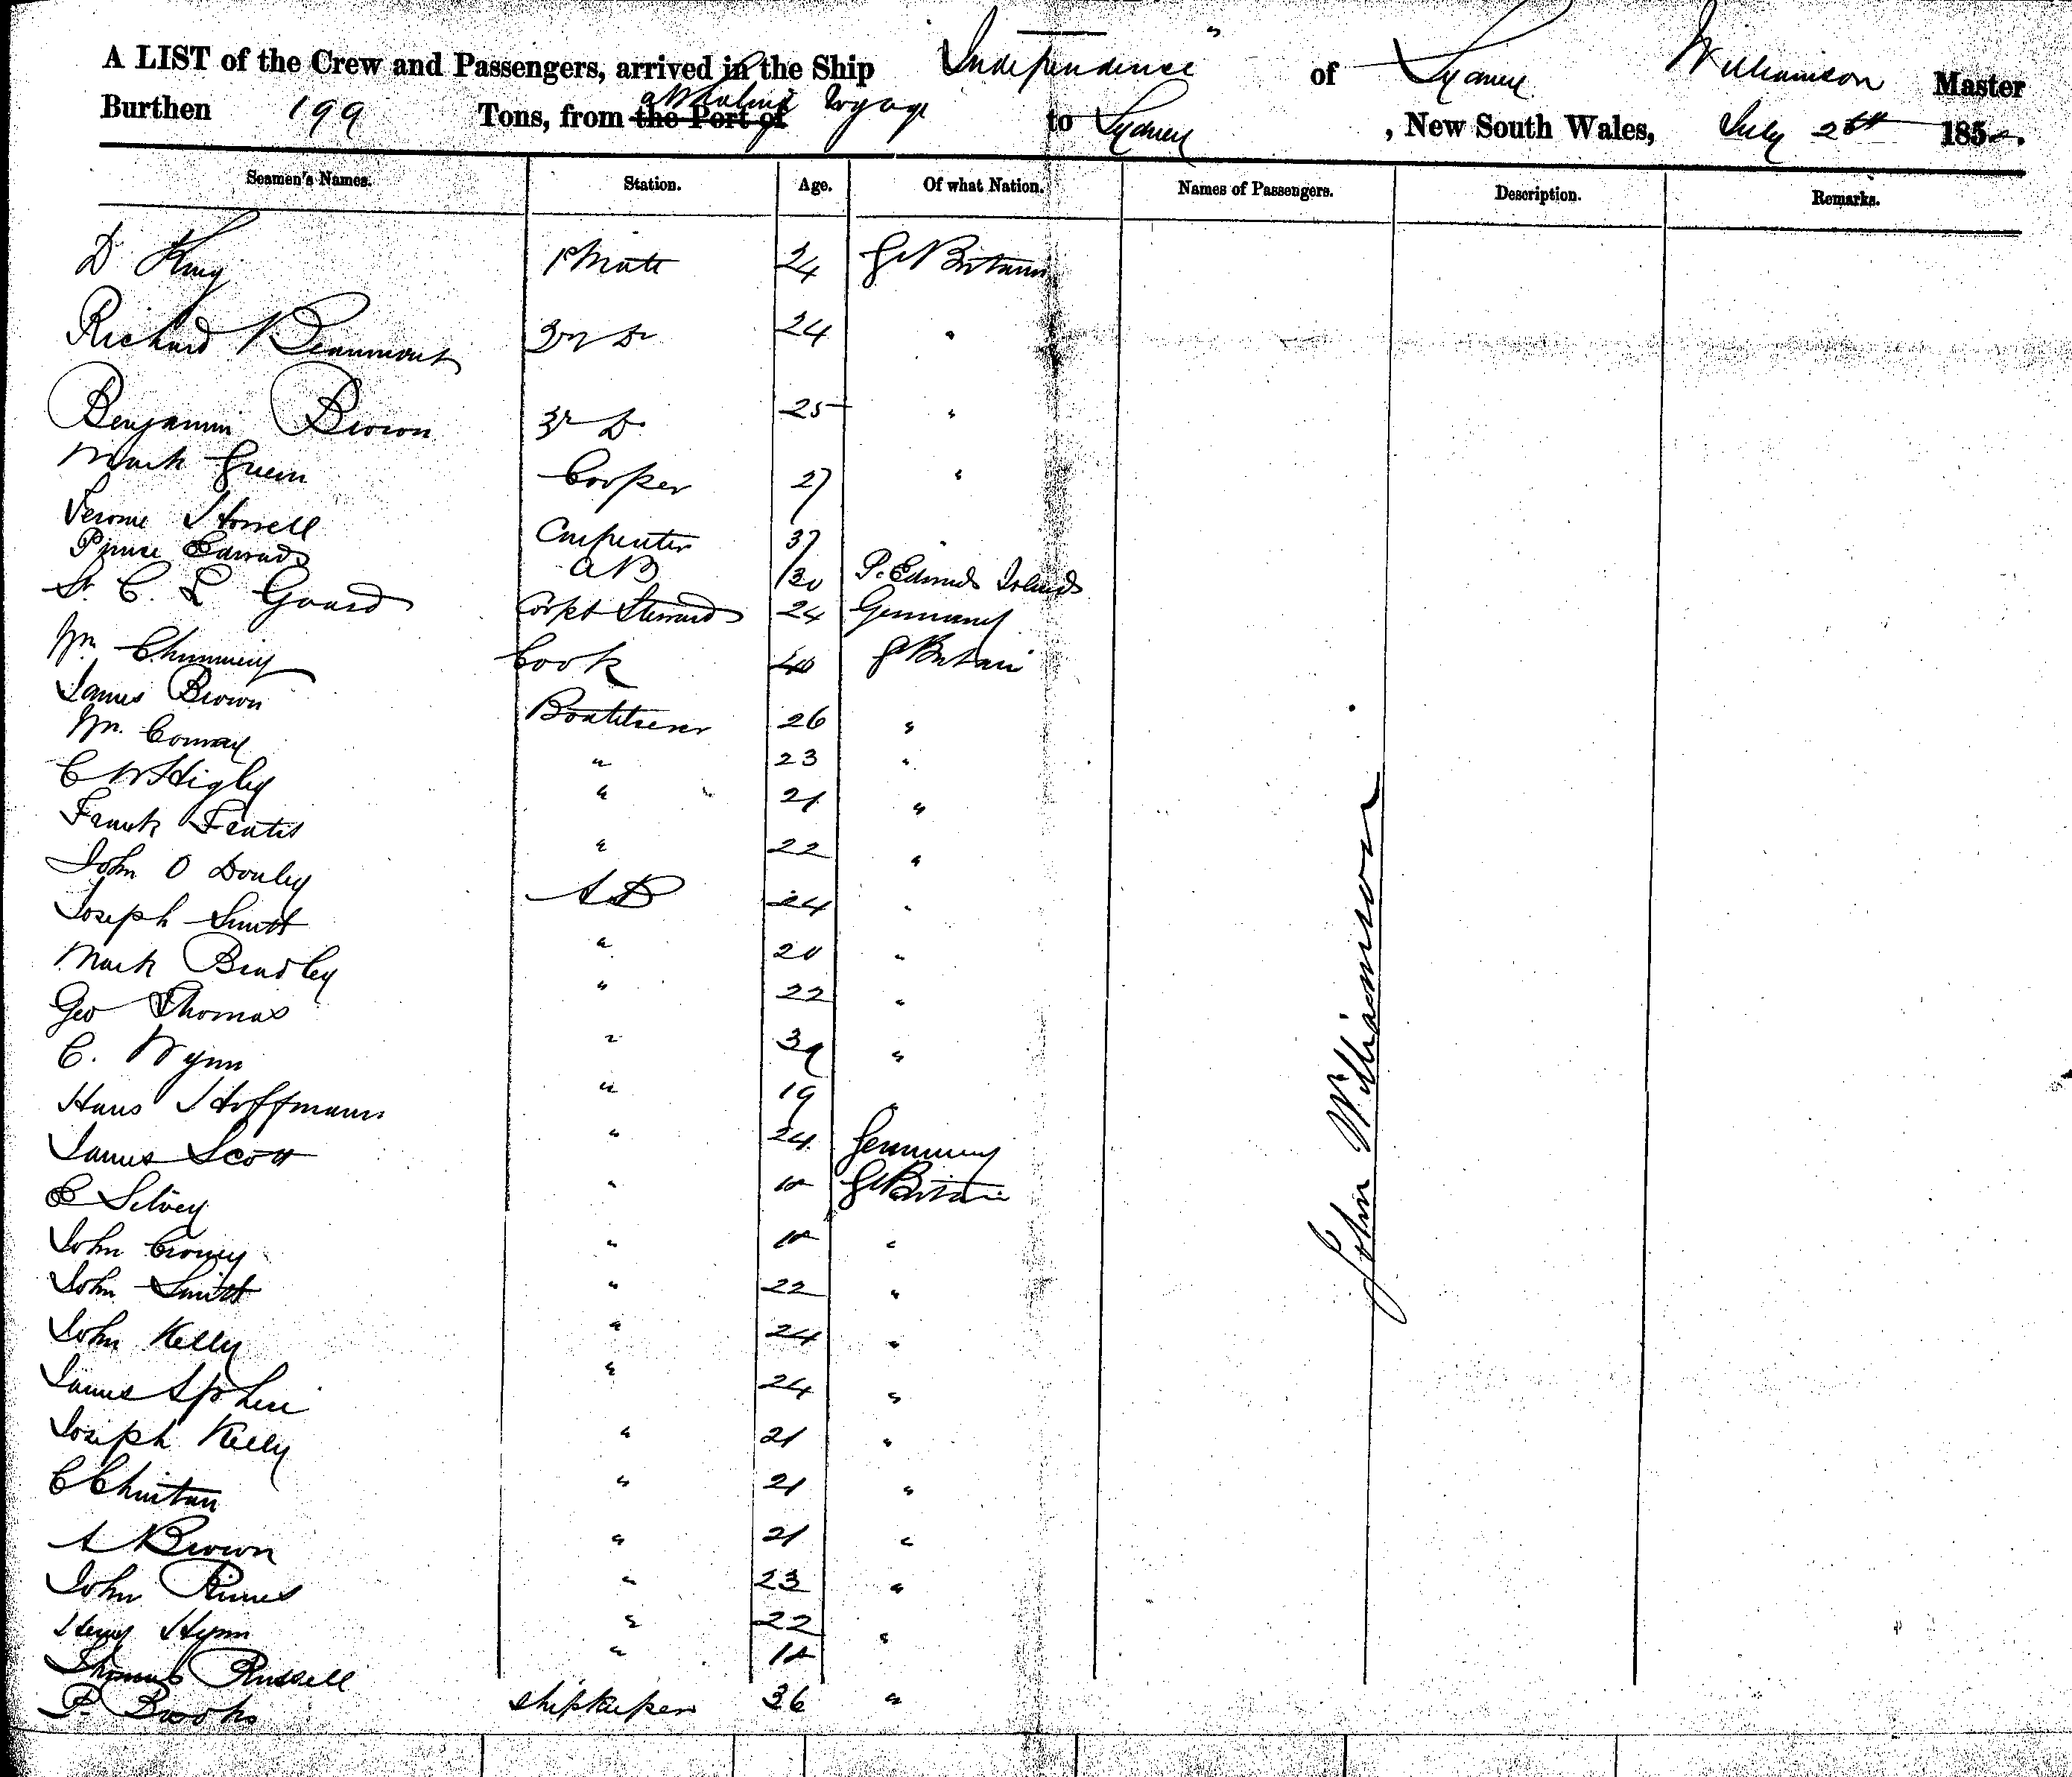 A LIST of the Crew and Passengers, arrived in the Ship "Independence" of Sydney Williamson Master
Burthen 199 Tons, from the Port of a Whaling Voyage to Sydney, New South Wales, July 26th 185
Seamen's Names. Station. Age. Of what Nation. Names of Passengers. Description. Remarks.
D King 1st Mate 24 Gt Britain
Richard Beaumont 2nd Do 24 "
Benjamin Brown 3r Do 25 "
Mark Green Cooper 27 "
Jerome Horrell Carpenter 37 "
Prince Edwards AB 30 P. Edwards Islands
St. C. L Goard Steward 24 Germany
Wm Chimmery Cook 40 Gt Britain
James Brown Boatsteerer 26 "
Wm. Conway " 23 "
C W Higley " 21 "
Frank " 22 "
John O Donley AB 24 "
Joseph Smith " 20 "
Mark Bradley " 22 "
Geo Thomas " 39 "
C. Wynn " 19 "
Hans Hoffmann " 24 Germany
James Scott " 18 Gt Britain
E Silvey " 18 "
John Croney " 22 "
John Smith " 24 "
John Kelly " 24 "
James " 21 "
Joseph Kelly " 21 "
C " 21 "
A Brown " 23 "
John " 22 "
Henry Hynn " 18
Thomas Russell
P Brooks Shipkeeper 36 "
John Williamson